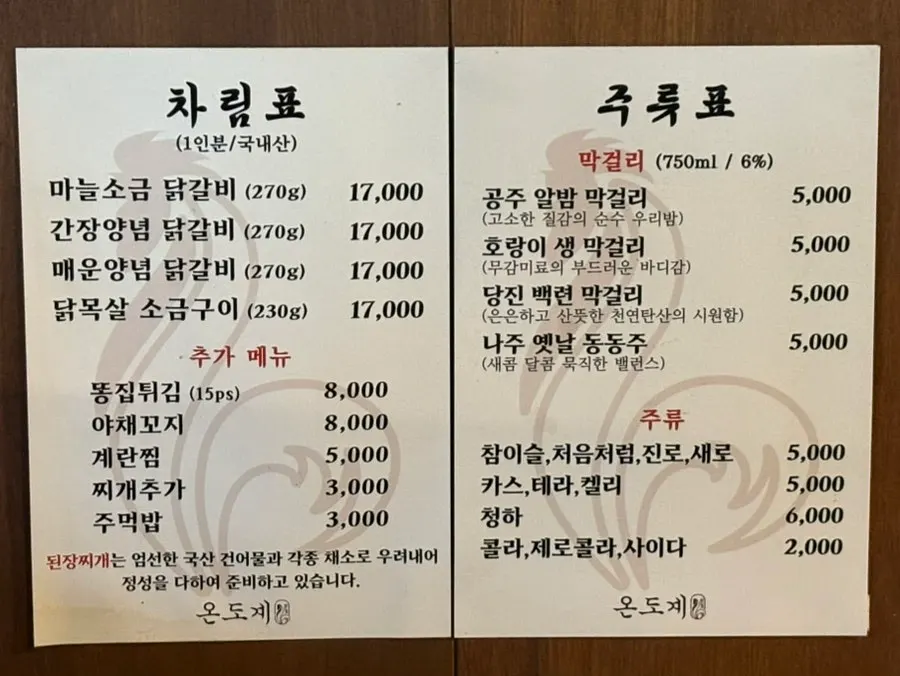 차림표
(1인분/국내산)
마늘소금 닭갈비 (270g) 17,000
간장양념 닭갈비 (270g) 17,000
매운양념 닭갈비 (270g) 17,000
닭목살 소금구이 (230g) 17,000
추가 메뉴
똥집튀김 (15ps) 8,000
야채꼬지 8,000
계란찜 5,000
찌개추가 3,000
주먹밥 3,000
된장찌개는 엄선한 국산 건어물과 각종 채소로 우려내어
정성을 다하여 준비하고 있습니다.
온도계
주륫표
막걸리 (750ml / 6%)
공주 알밤 막걸리 5,000
(고소한 질감의 순수 우리밤)
호랑이 생 막걸리 5,000
(무감미료의 부드러운 바디감)
당진 백련 막걸리 5,000
(은은하고 산뜻한 천연탄산의 시원함)
나주 옛날 동동주 5,000
(새콤 달콤 묵직한 밸런스)
주류
참이슬,처음처럼,진로,새로 5,000
카스,테라,켈리 5,000
청하 6,000
콜라,제로콜라,사이다 2,000
온도계